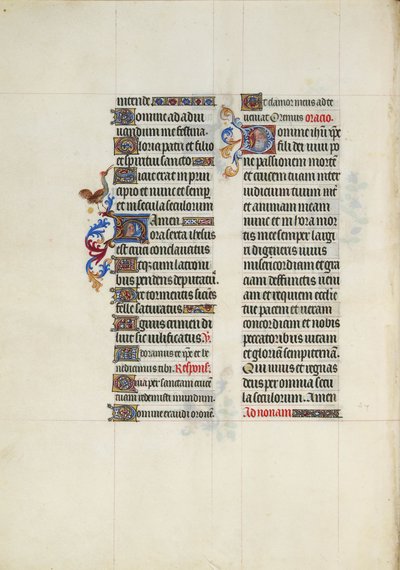 intende
Domine ad adiu
uandum me festina.
Gloria patri et filio
et spiritui sancto
Sicut erat in prin
cipio et nunc et semp
et in secula seculorum
Amen
Hora sexta ihesus
est cruci conclauatus
Atq; cum latroni
bus pendens deputatus.
Pre tormentis siciens
felle saturatus
Agnus crimen di
luit sic iustificatus V.
Adoramus te xpe et be
nedicimus tibi. Respons.
Quia per sanctam cruce
tuam redemisti mundum.
Domine exaudi oronem
Et clamor meus ad te
ueniat Oremus oracio.
Domine ihu xpe
fili dei uiui po
ne passionem morte
et crucem tuam inter
iudicium tuum met
et animam meam
nunc et in hora mor
tis mee s per largi
ri digneris uiuis
misericordiam et gra
ciam deffunctis ueni
am et requiem eccle
tue pacem et ueram
concordiam et nobis
peccatoribus uitam
et gloriam sempiternam.
Qui uiuis et regnas
deus per omnia secu
la seculorum. Amen
Ad nonam